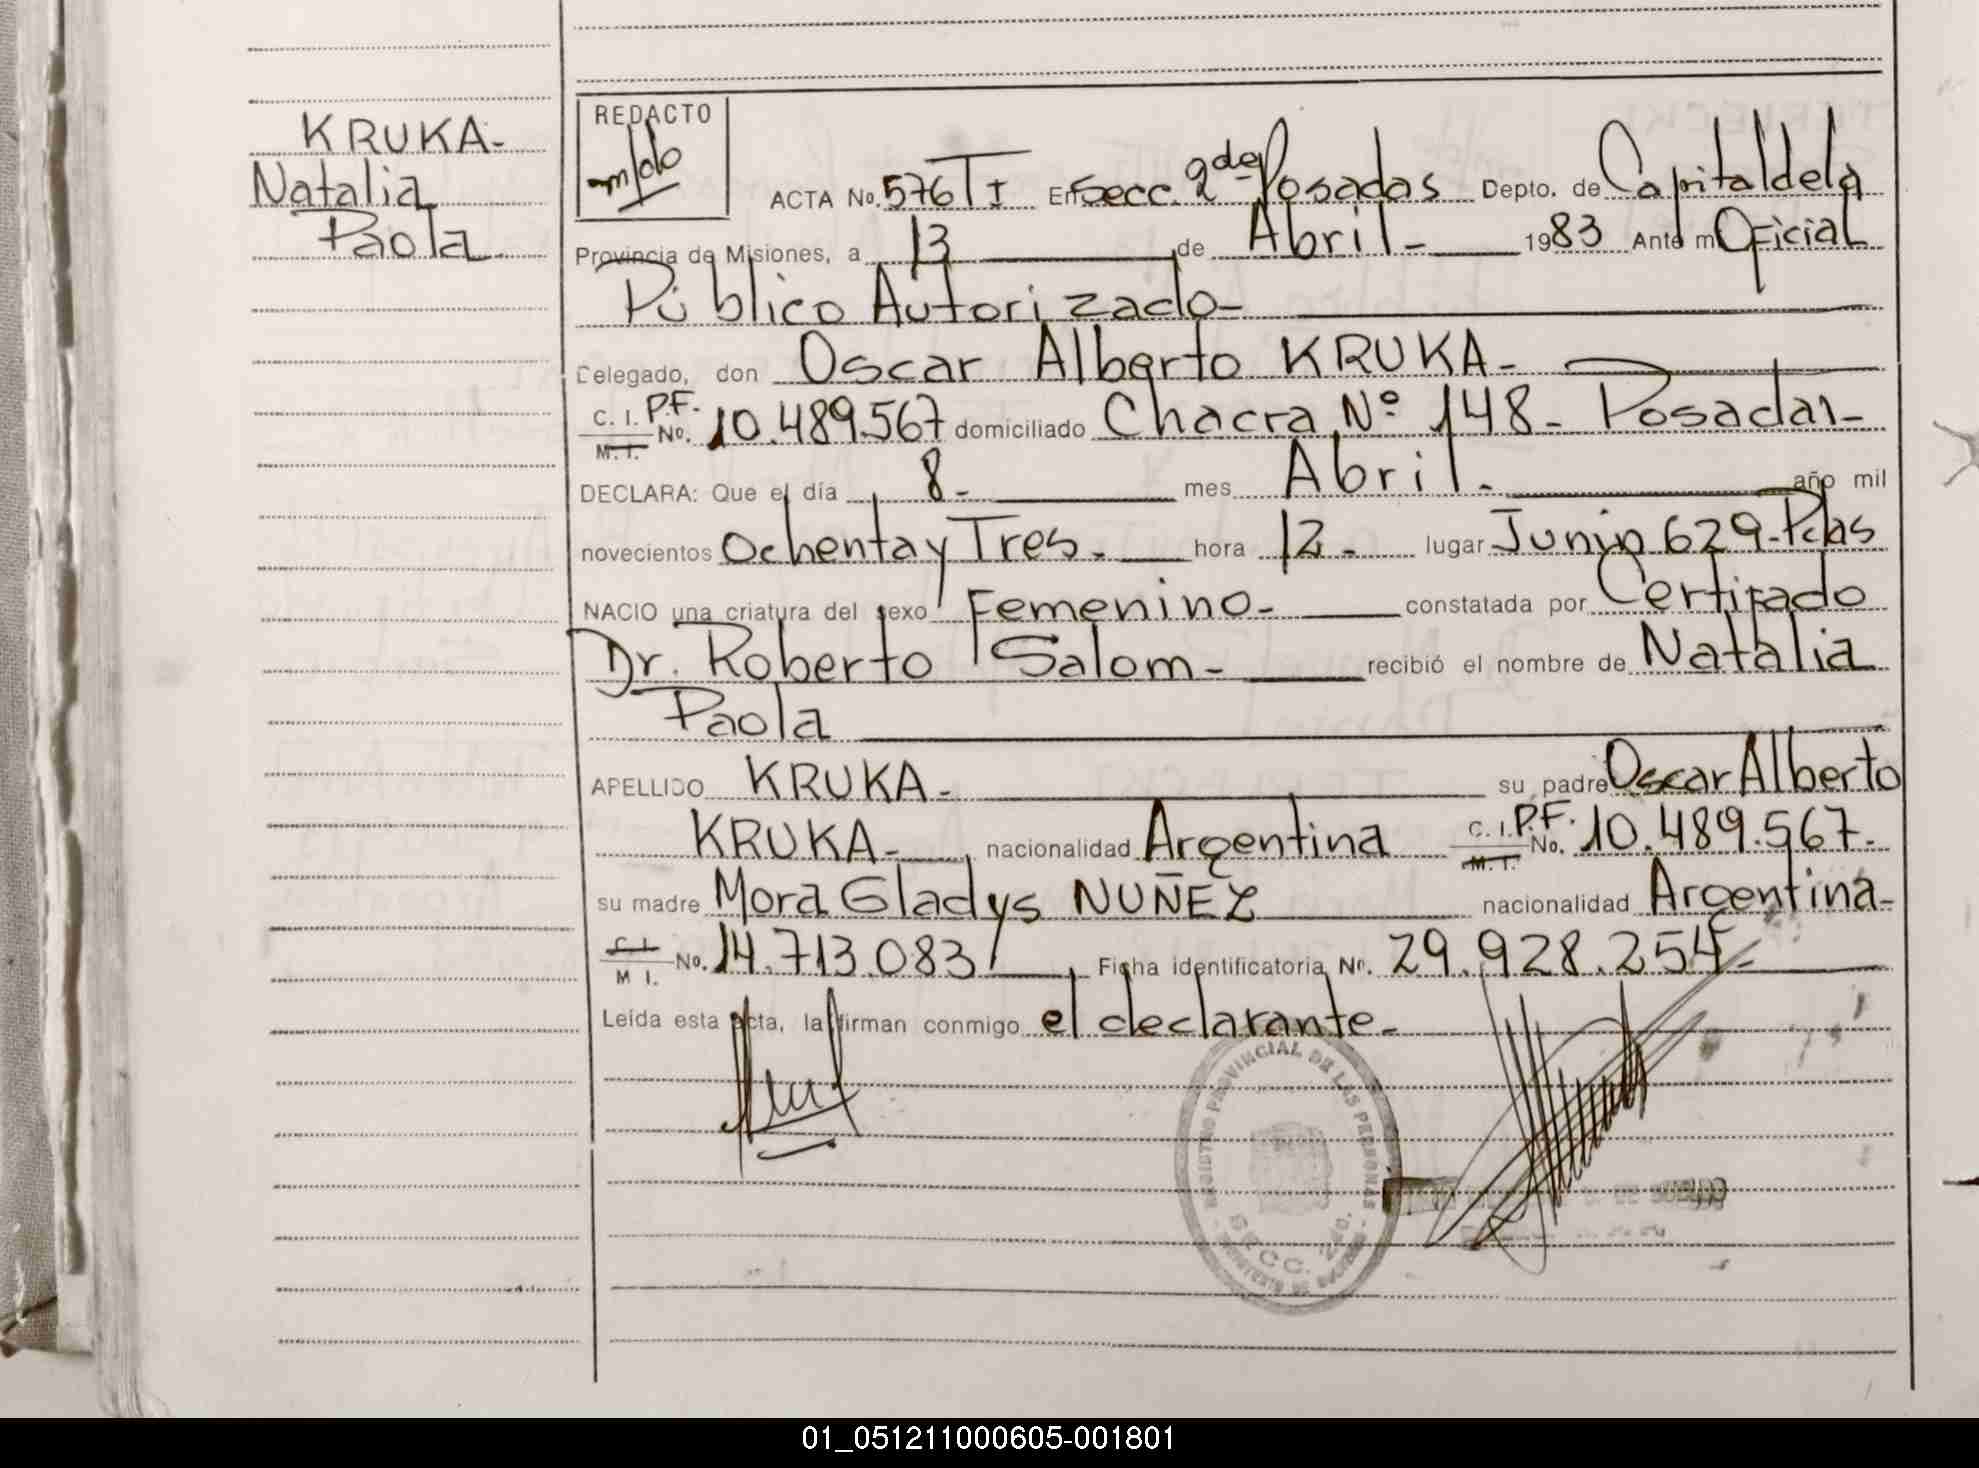 KRUKA-
Natalia
Paola
REDACTO
ACTA No. 576 TI En Secc. 2da de Posadas Depto. de Capital dela
Provincia de Misiones, a 13 de Abril - 1983 Ante mi Oficial
Público Autorizado-
Delegado, don Oscar Alberto KRUKA-
C. I. P.F. M. I. No. 10.489.567 domiciliado Chacra Nº 148- Posadas-
DECLARA: Que el día 8- mes Abril. año mil
novecientos Ochenta y Tres- hora 12- lugar Junin 629-Pdas
NACIO una criatura del sexo Femenino- constatada por Certificado
Dr. Roberto Salom- recibió el nombre de Natalia
Paola
APELLIDO KRUKA- su padre Oscar Alberto
KRUKA- nacionalidad Argentina C. I. P.F. M. I. No. 10.489.567.
su madre Mora Gladys NUÑEZ nacionalidad Argentina-
C. I. M I. No. 14.713.083 Ficha identificatoria Nr. 29.928.254-
Leída esta acta, la firman conmigo el declarante-
REGISTRO PROVINCIAL DE LAS PERSONAS
SECC. 2da.
MINISTERIO DE GOBIERNO
01_051211000605-001801